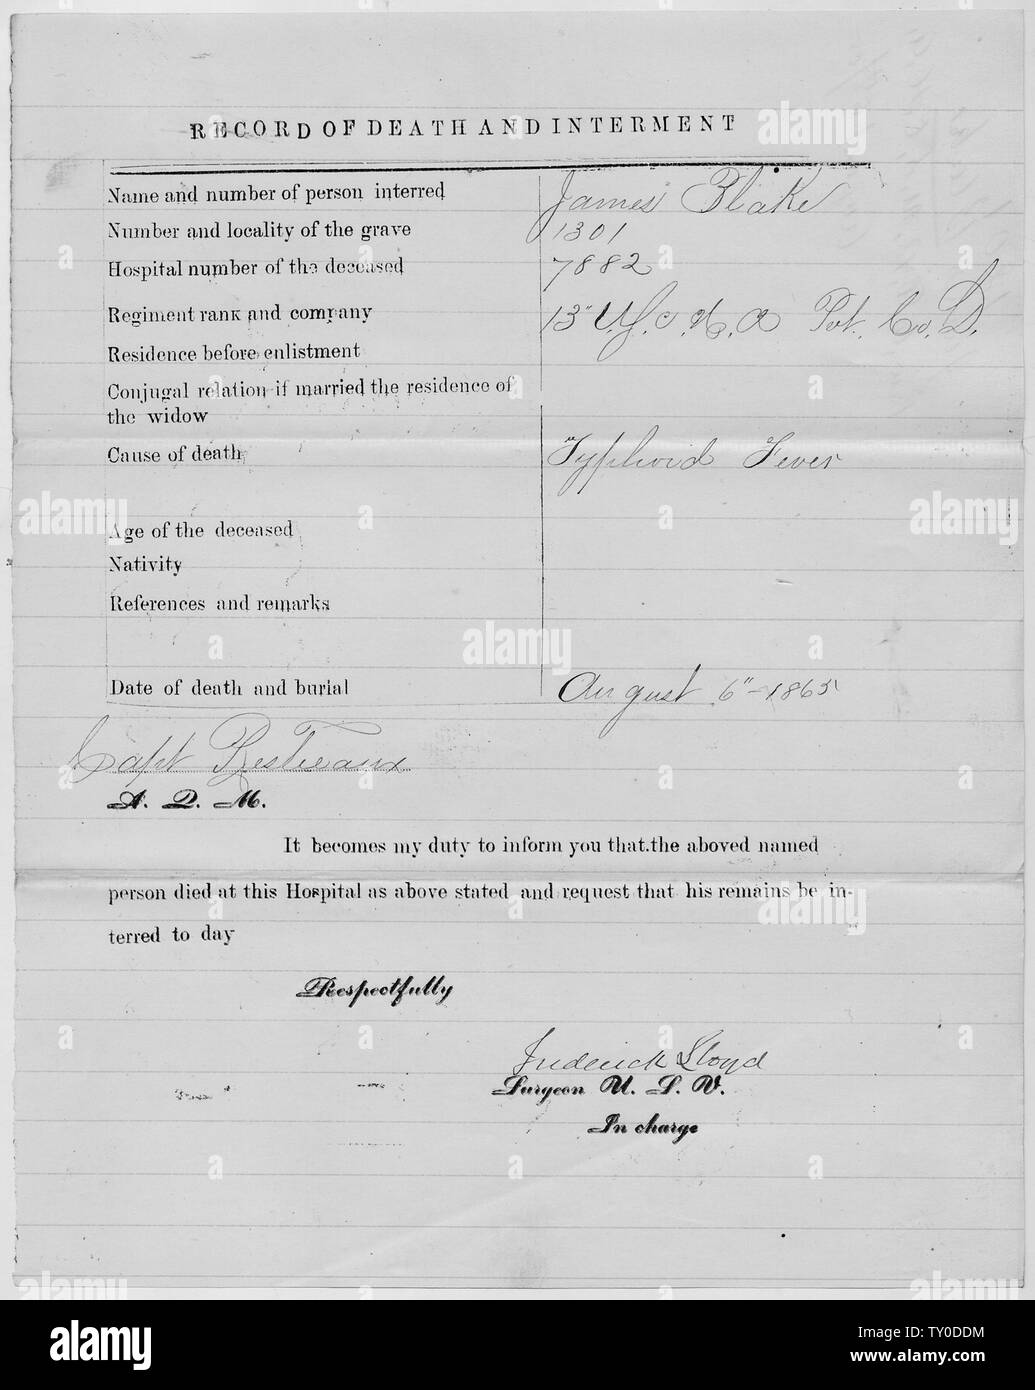 RECORD OF DEATH AND INTERMENT
Name and number of person interred James Blake
Number and locality of the grave 1301
Hospital number of the deceased 7882
Regiment rank and company 13" U.S.C.H.A Pvt. Co. D.
Residence before enlistment
Conjugal relation if married the residence of
the widow
Cause of death Typhoid Fever
Age of the deceased
Nativity
References and remarks
Date of death and burial August 6" - 1865
Capt
A. Q. M.
It becomes my duty to inform you that.the aboved named
person died at this Hospital as above stated and request that his remains be in-
terred to day
Respectfully
Frederick Lloyd
Surgeon U. S. V.
In charge
alamy
alamy
Image ID: TY0DDM
www.alamy.com